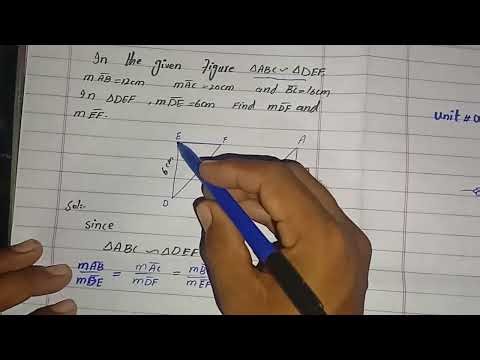 In the given Figure △ABC ∽ △DEF
mAB̅=12cm mAC̅=20cm and BC=16cm
In △DEF, mDE̅=6cm Find mDF̅ and
mEF̅.
Unit #
E F A
6cm
D
Sol:-
Since
△ABC ∽ △DEF
mAB̅/mDE̅ = mAC̅/mDF̅ = mB/mEF